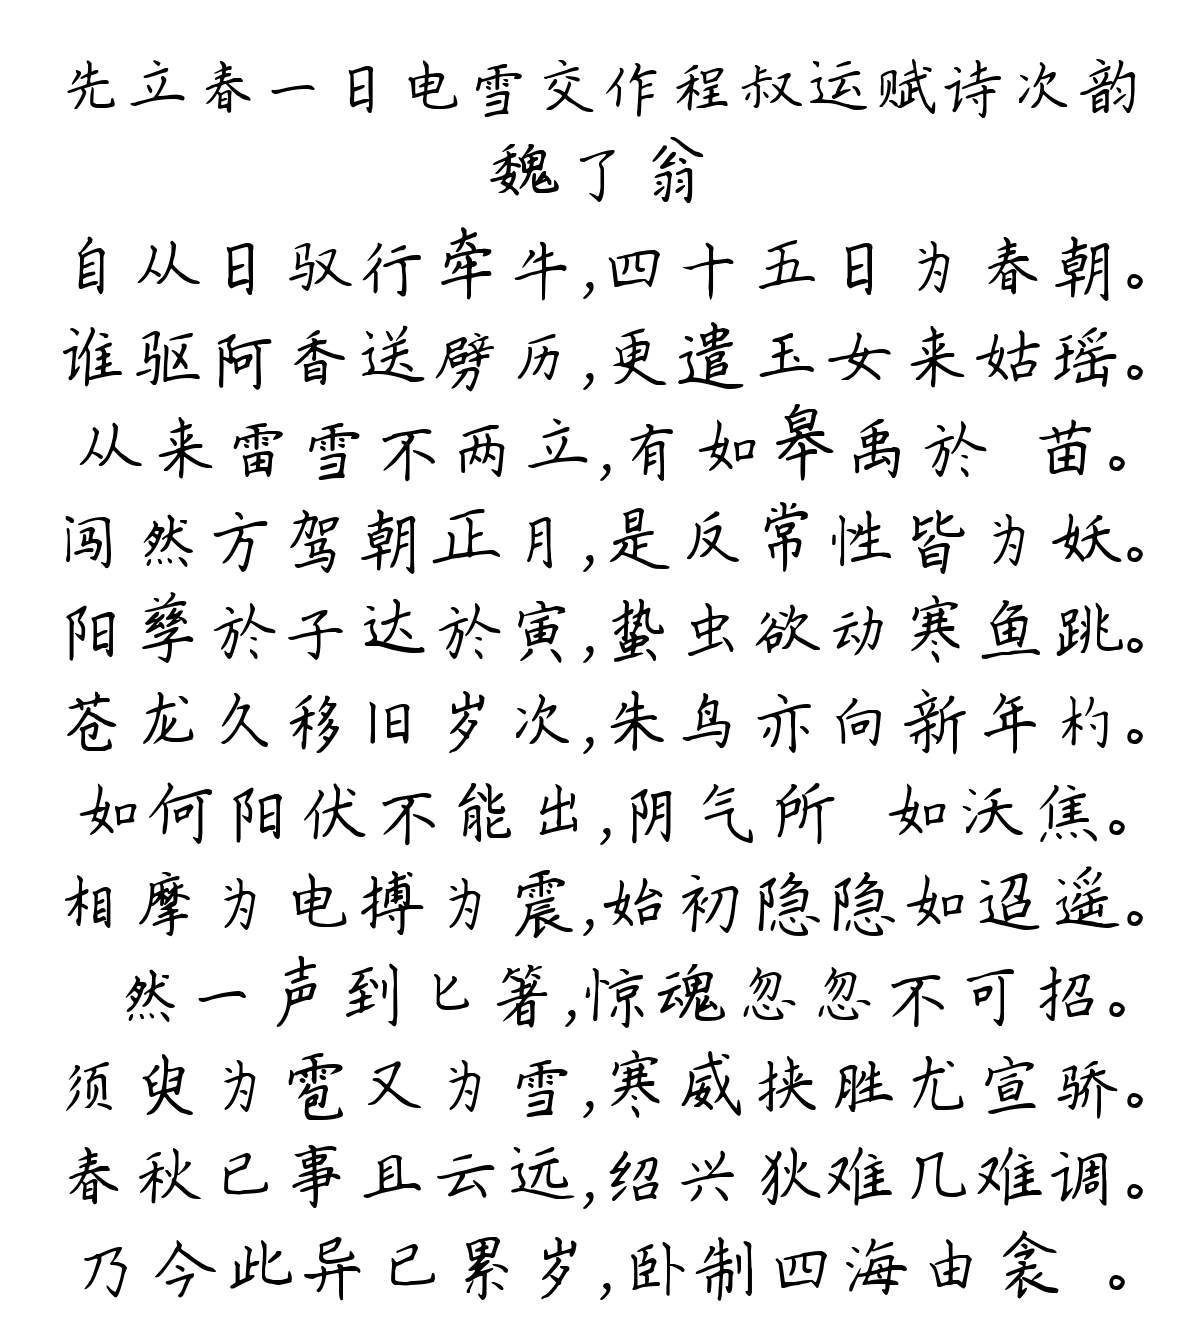 先立春一日电雪交作程叔运赋诗次韵
魏了翁
自从日驭行牵牛,四十五日为春朝。
谁驱阿香送劈历,更遣玉女来姑瑶。
从来雷雪不两立,有如皋禹於 苗。
闯然方驾朝正月,是反常性皆为妖。
阳孳於子达於寅,蛰虫欲动寒鱼跳。
苍龙久移旧岁次,朱鸟亦向新年杓。
如何阳伏不能出,阴气所 如沃焦。
相摩为电搏为震,始初隐隐如迢遥。
然一声到匕箸,惊魂忽忽不可招。
须臾为雹又为雪,寒威挟胜尤宣骄。
春秋已事且云远,绍兴狄难几难调。
乃今此异已累岁,卧制四海由衾 。